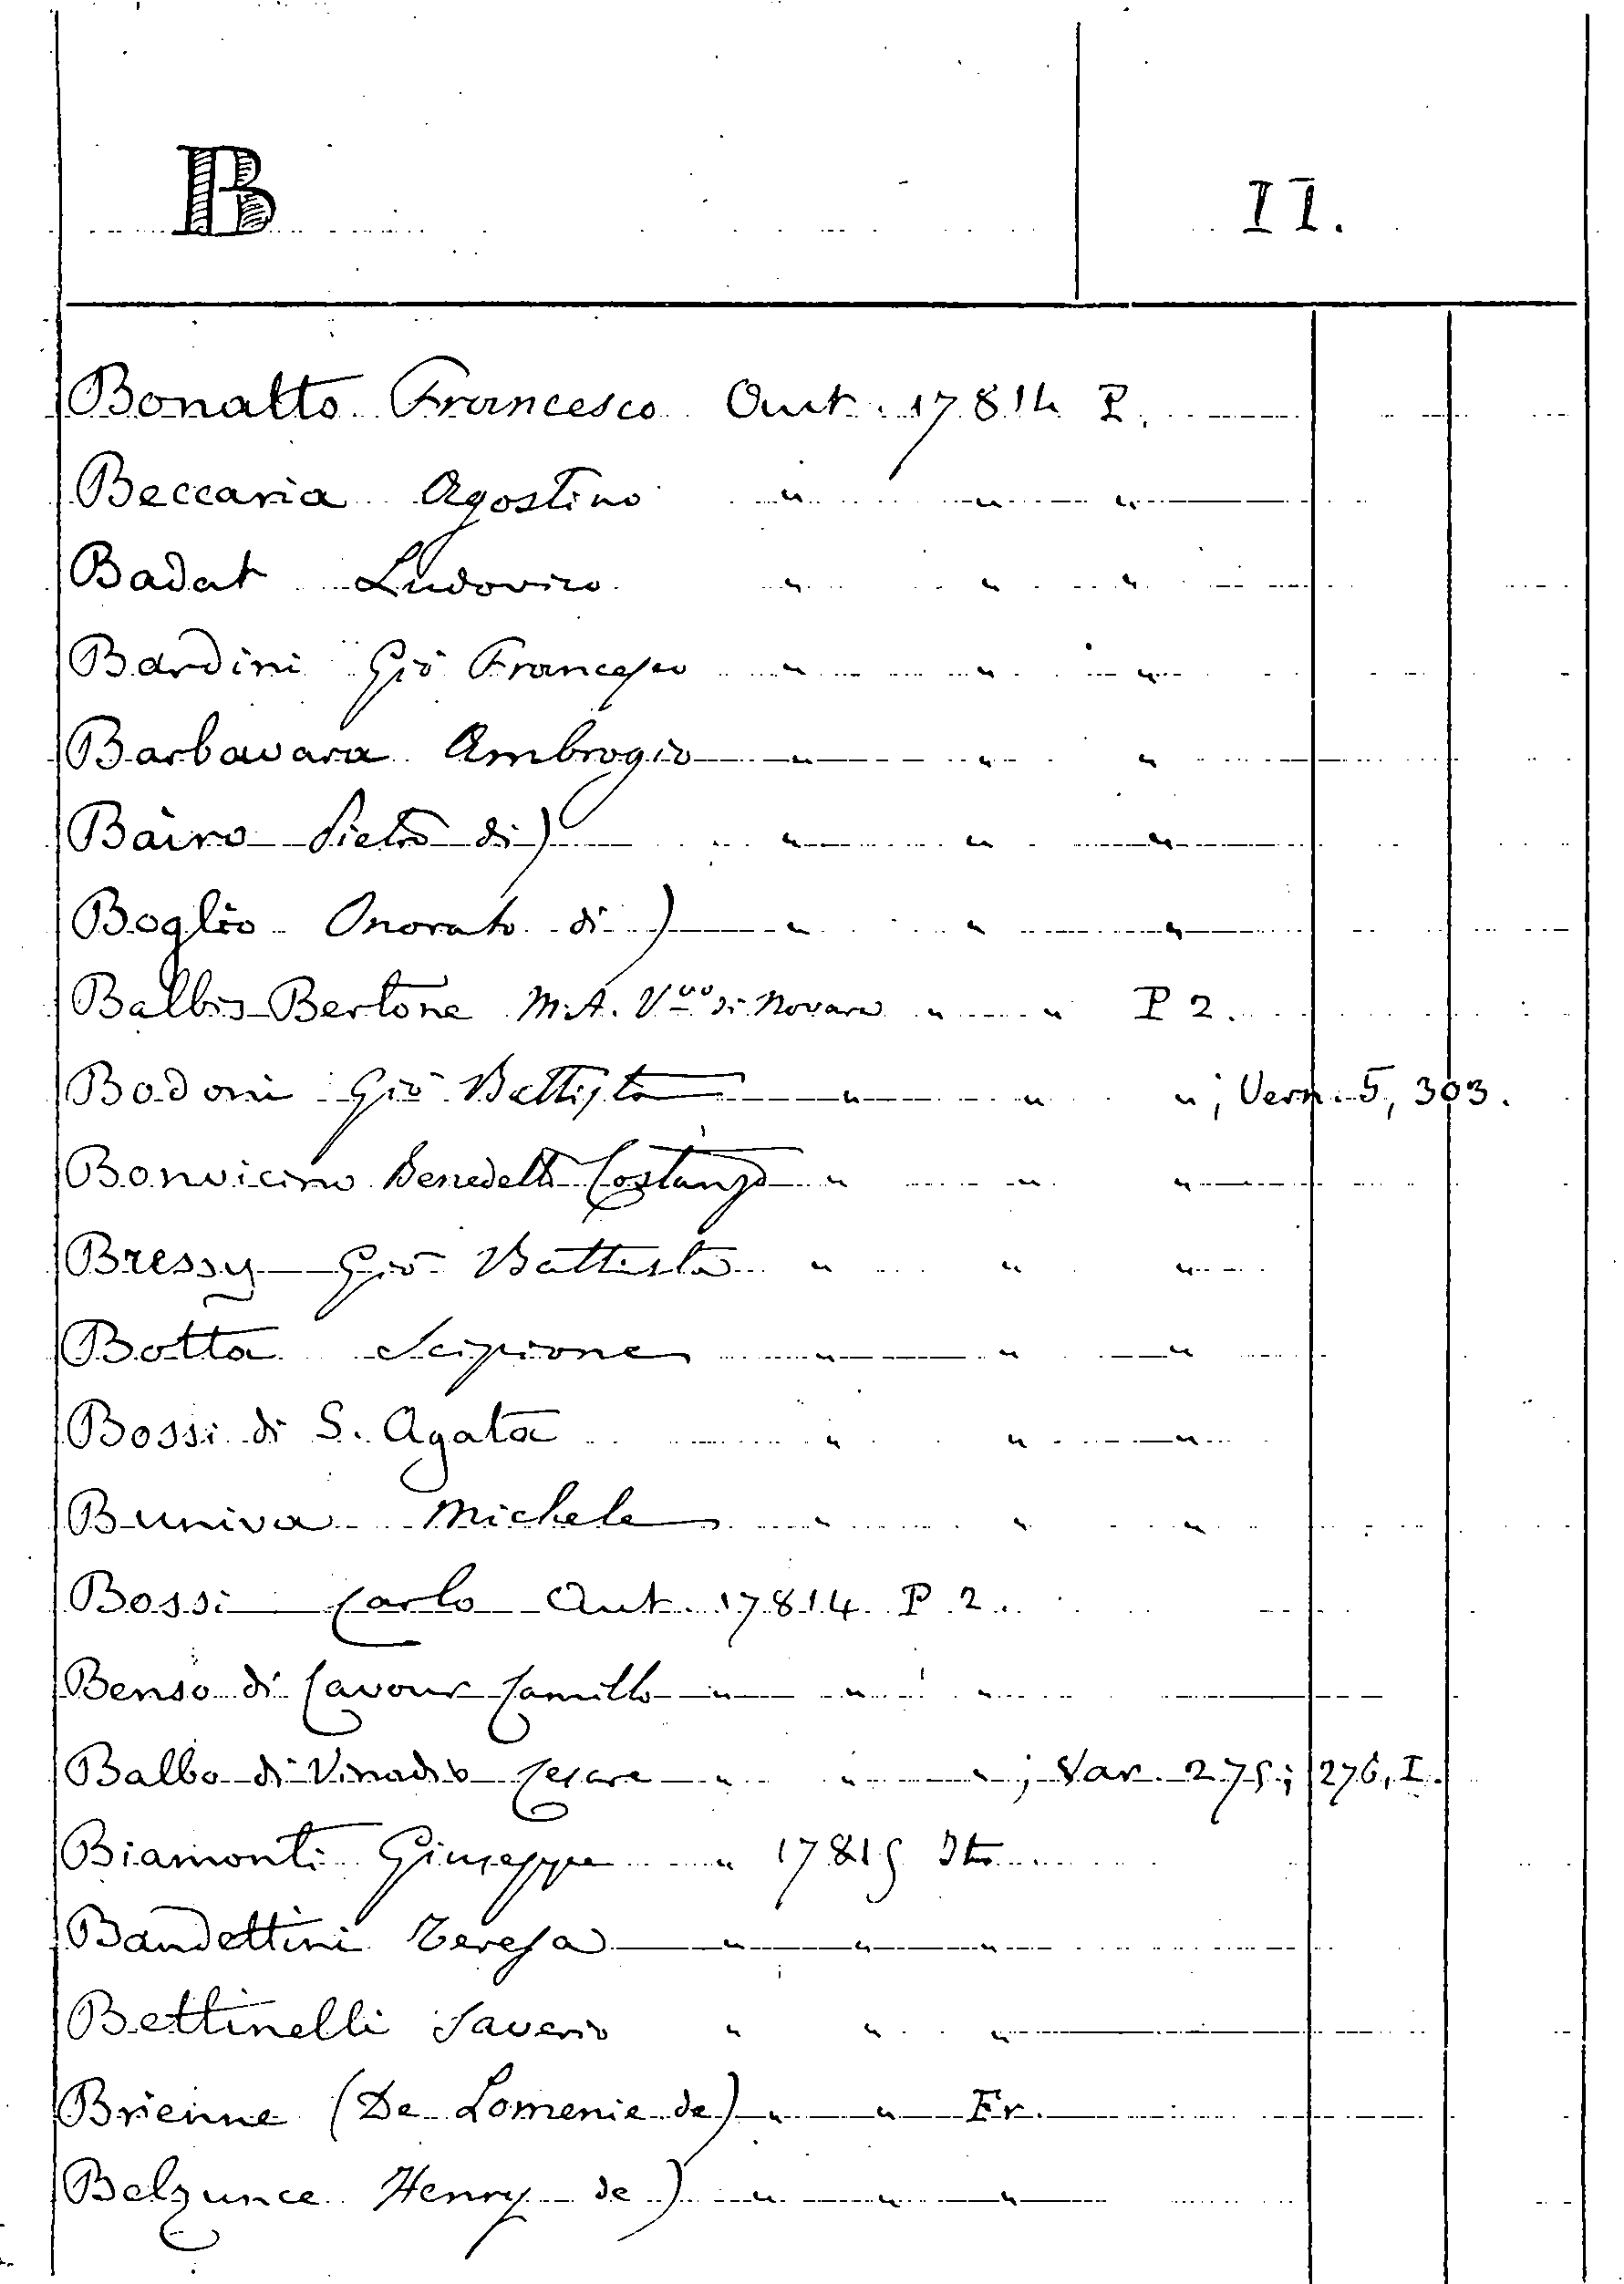 B
II.
Bonatto Francesco Aut. 17814 P.
Beccaria Agostino " " "
Badat Ludovico " " "
Bardini Giò Francesco " " "
Barbavara Ambrogio " " "
Bairo Pietro di) " " "
Boglio Onorato di) " " "
Balbis Bertone M.A. V.vo di Novara " " P 2.
Bodoni Giò Battista " " " ; Vern. 5, 303.
Bonvicino Benedetto Costanzo " " "
Bressy Giò Battista " " "
Botta Scipione " " "
Bossi di S. Agata " " "
Buniva Michele " " "
Bossi Carlo Aut. 17814 P 2.
Benso di Cavour Camillo " " "
Balbo di Vinadio Cesare " " " ; Var. 275; 276, I.
Biamonti Giuseppe " 17815 It.
Bandettini Teresa " " "
Bettinelli Saverio " " "
Brienne (De Lomenie de) " " Fr.
Belzunce Henry de) " " "